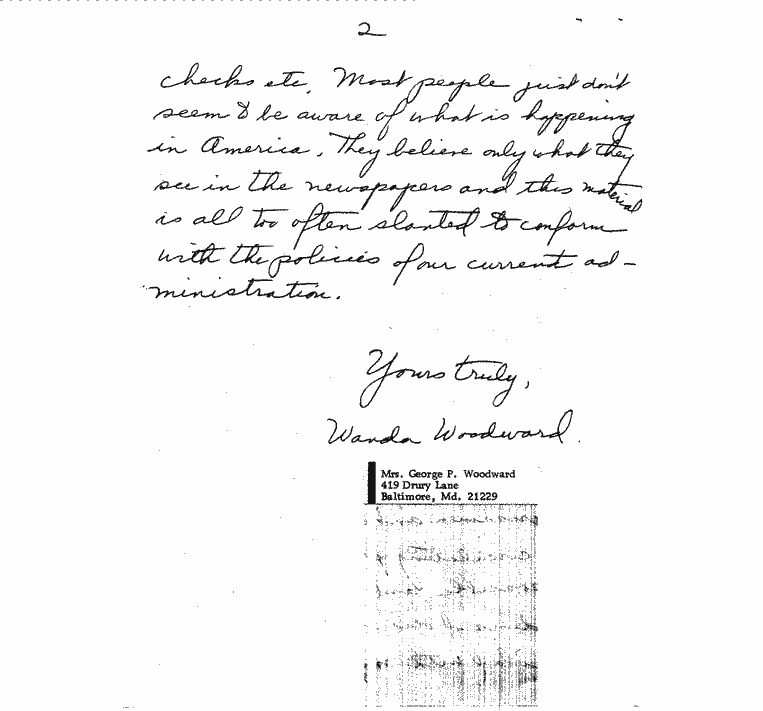 2
checks etc. Most people just don't
seem to be aware of what is happening
in America. They believe only what they
see in the newspapers and this material
is all too often slanted to conform
with the policies of our current ad-
ministration.
Yours truly,
Wanda Woodward.
Mrs. George P. Woodward
419 Drury Lane
Baltimore, Md. 21229